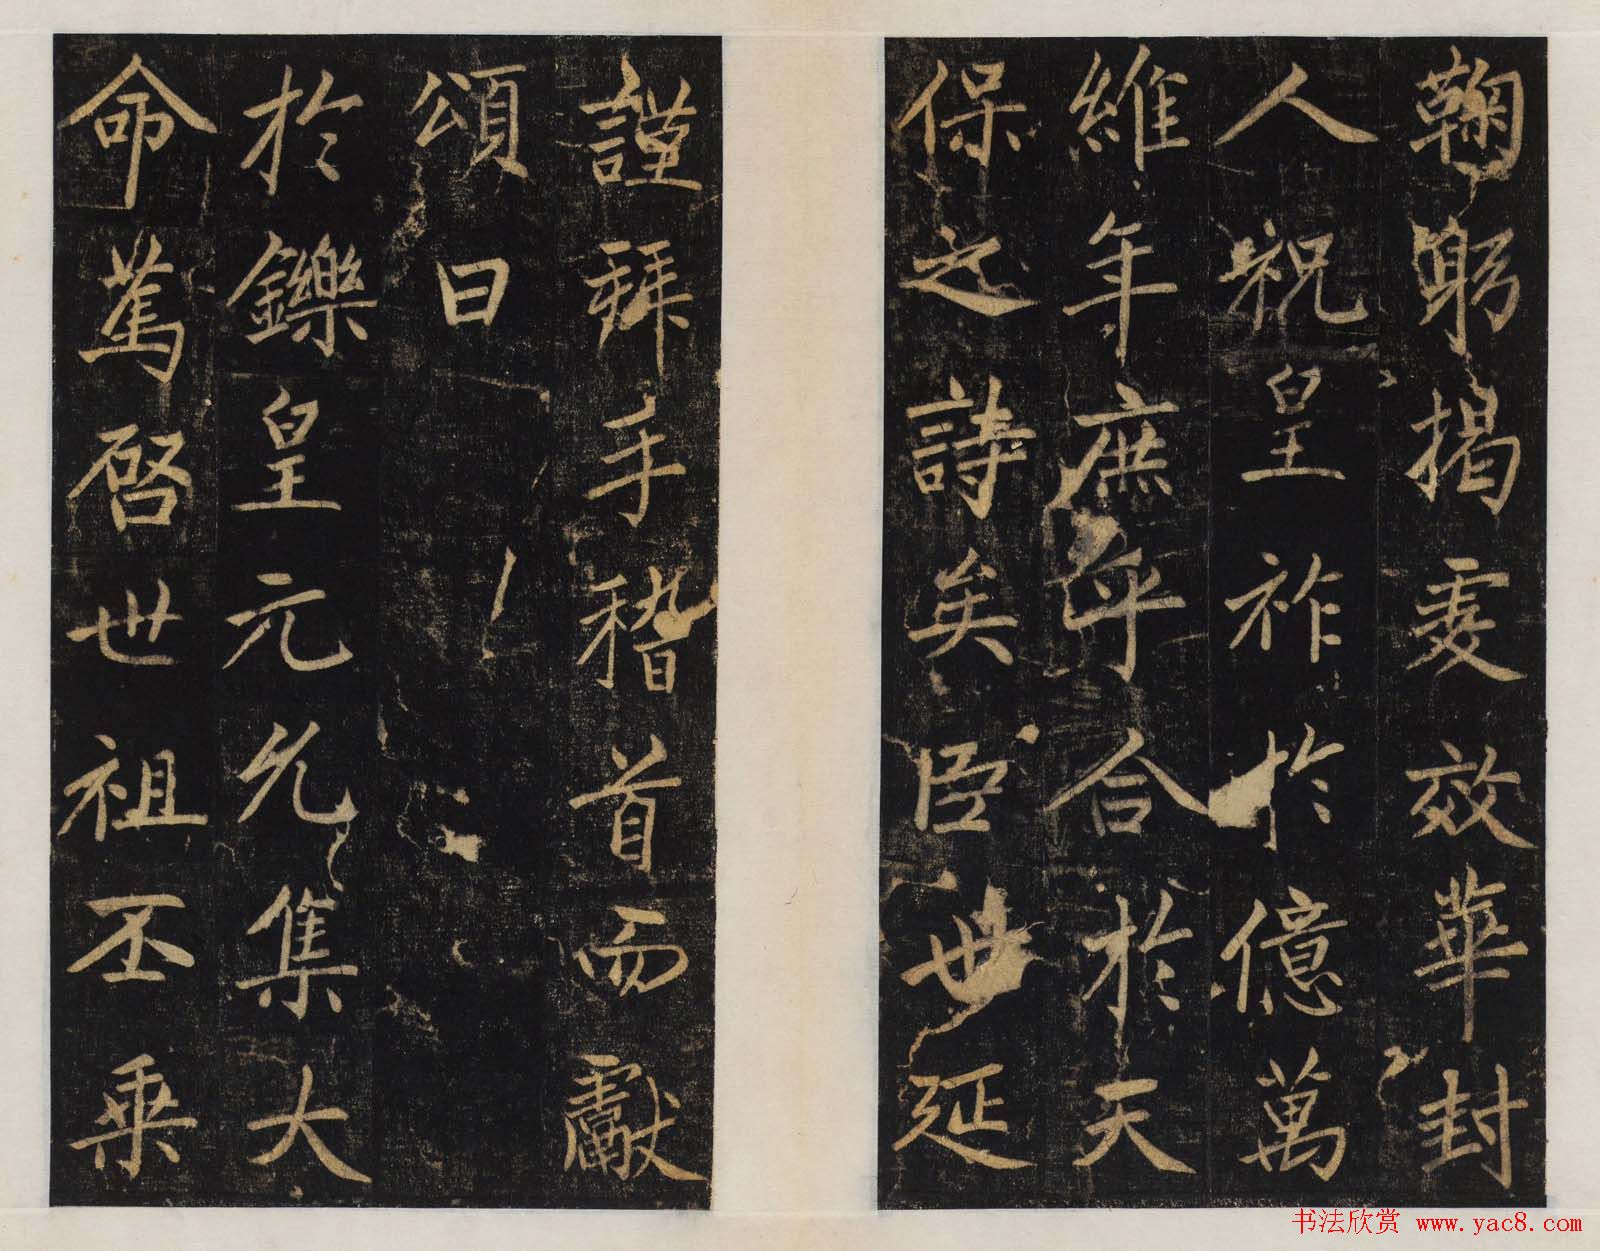 鞠躬揭虔效華封
人祝皇祚於億萬
維年庶乎合於天
保之詩矣臣世延
謹拜手稽首而獻
頌曰
於鑠皇元允集大
命篤啓世祖丕乘
书法欣赏 www.yac8.com